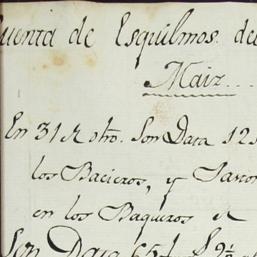 Cuenta de Esquilmos de
Maiz...
En 31 de otro. Son Data 12
los Bacieros, y
en los Baqueros
Son Data 65